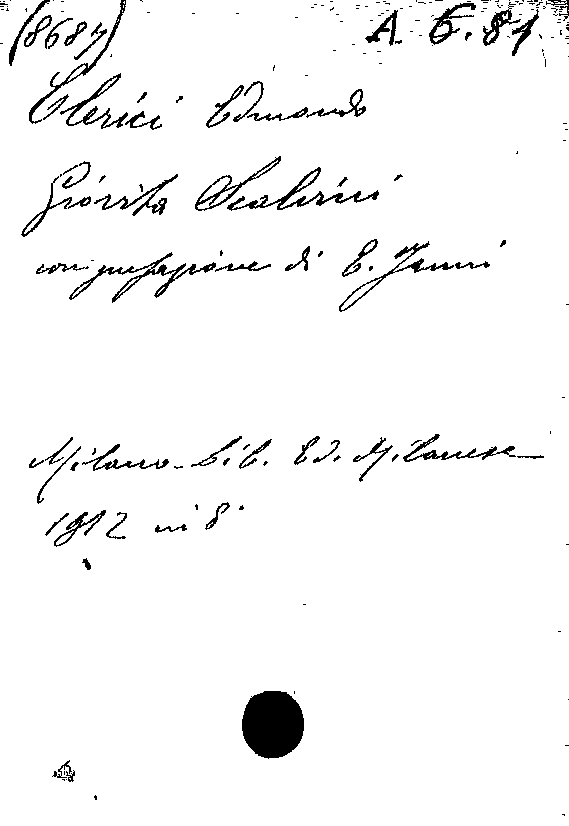 (8687) A. 6. 81.
Clerici Edmondo
Giovita Scalvini
con prefazione di E. Janni
Milano - Lib. Ed. Milanese
1912 in 8°